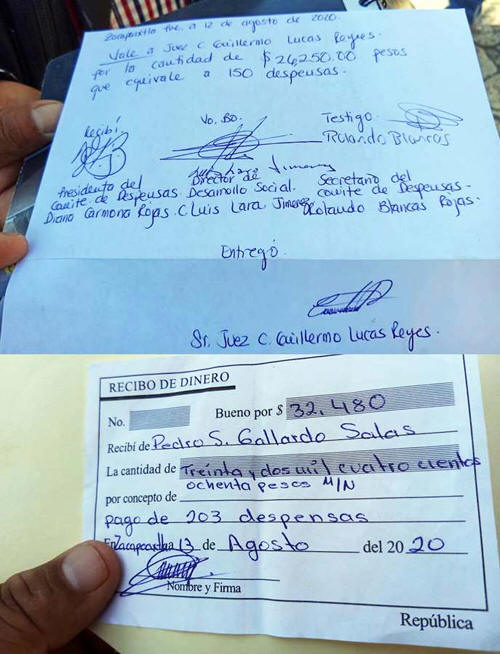 Zacapoaxtla Pue. a 12 de agosto de 2020.
Vale a Juez C Guillermo Lucas Reyes.
por la cantidad de $26,250.00 pesos
que equivale a 150 despensas.
Recibí
Vo. Bo.
Testigo
Rolando Blancas
Presidenta del
Comite de Despensas
Diana Carmona Rojas
Director de
Desarrollo Social.
C Luis Lara Jimenez
Secretario del
Comite de Despensas.
Rolando Blancas Rojas.
Entregó
Sr. Juez C. Guillermo Lucas Reyes.
RECIBO DE DINERO
No. Bueno por $ 32,480
Recibí de Pedro S. Gallardo Salas
La cantidad de Treinta y dos mil cuatro cientos
ochenta pesos M/N
por concepto de
pago de 203 despensas
En Zacapoaxtla 13 de Agosto del 2020
Nombre y Firma
República